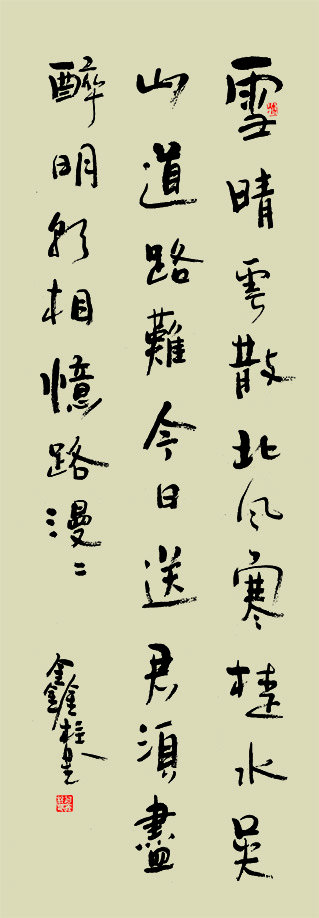 雪晴雲散北風寒楚水吳
山道路難今日送君須盡
醉明朝相憶路漫〻
鑫柱書